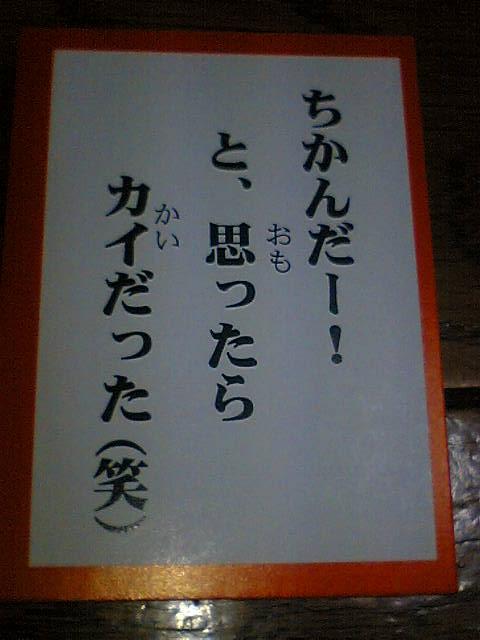 ちかんだー！
と、思ったら
カイだった（笑）
おも
かい